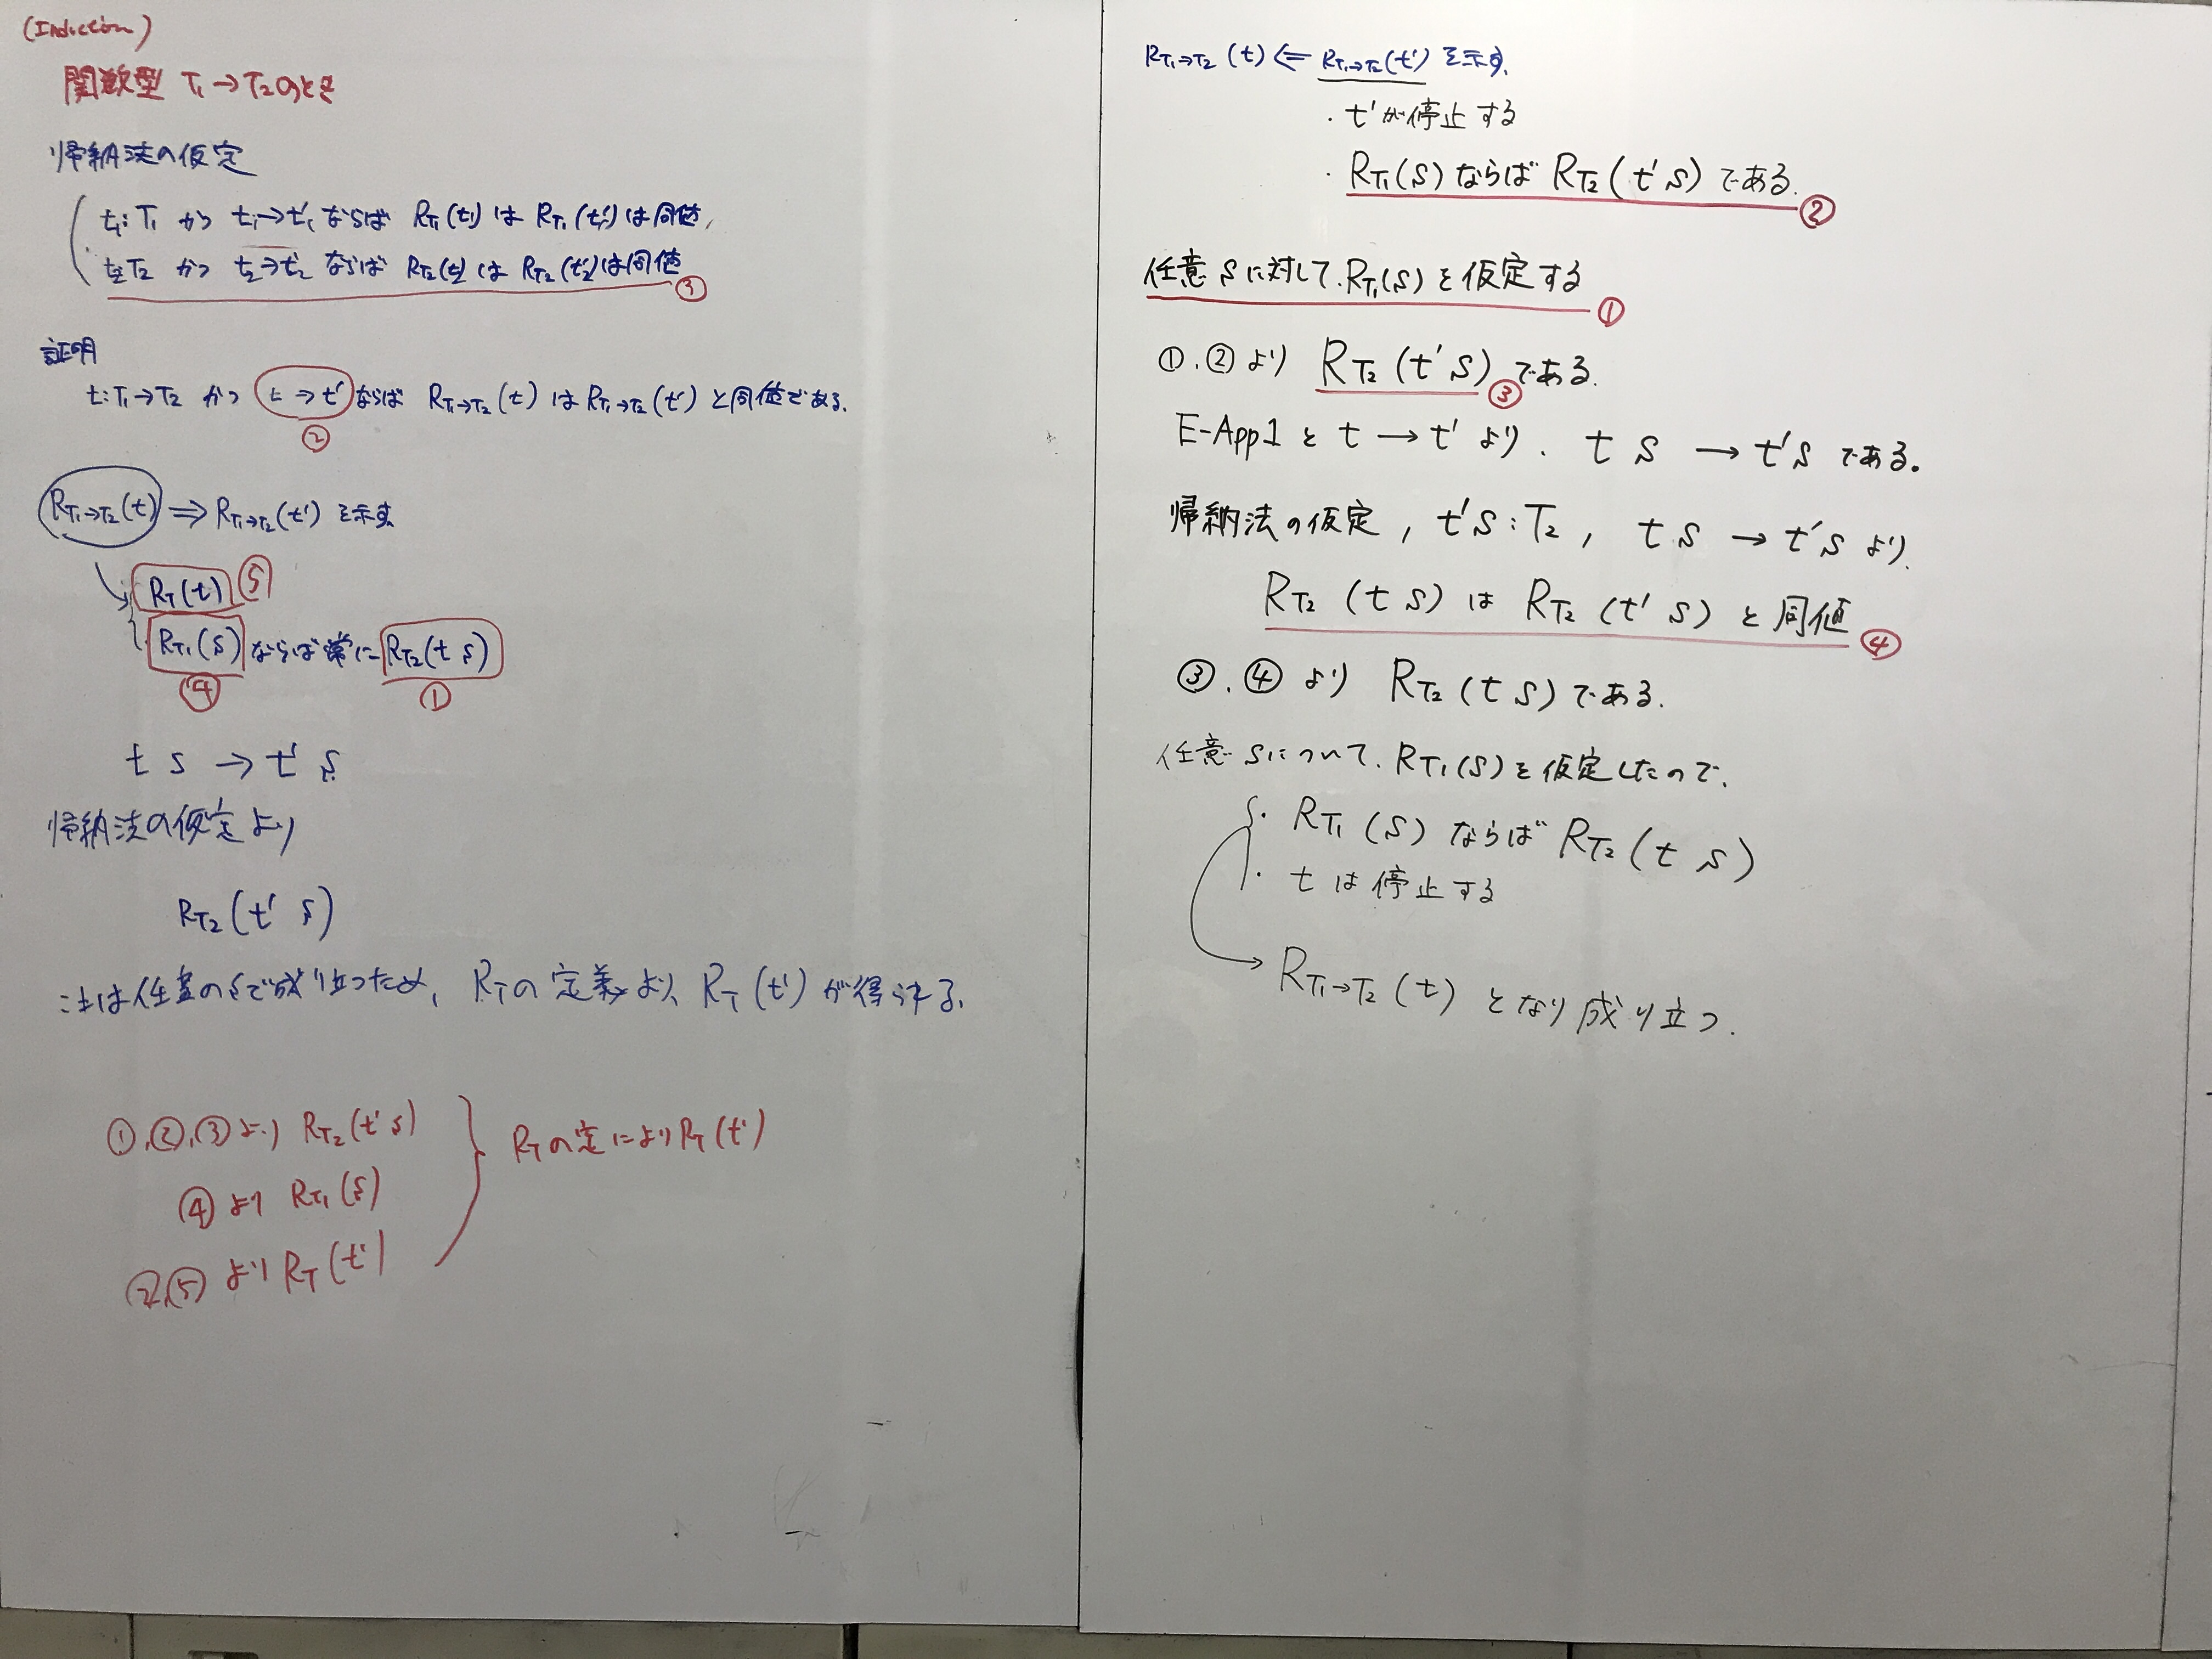 (Induction)
関数型 T₁→T₂のとき
帰納法の仮定
t₁:T₁ かつ t₁→t'₁ ならば R_T₁(t₁) は R_T₁(t'₁) は同値,
t₂:T₂ かつ t₂→t'₂ ならば R_T₂(t₂) は R_T₂(t'₂) は同値
③
証明
t:T₁→T₂ かつ t→t' ならば R_T₁→T₂(t) は R_T₁→T₂(t') と同値である.
②
R_T₁→T₂(t) ⇒ R_T₁→T₂(t') を示す
R_T(t) ⑤
R_T₁(s) ならば常に R_T₂(t s)
④ ①
t s → t' s
帰納法の仮定より
R_T₂(t' s)
これは任意のsで成り立つため, R_Tの定義より, R_T(t') が得られる.
①,②,③より R_T₂(t' s)
④より R_T₁(s)
②,⑤より R_T(t')
R_Tの定によりR_T(t')
R_T₁→T₂(t) ⇐ R_T₁→T₂(t') を示す.
・t'が停止する
・R_T₁(s)ならば R_T₂(t' s) である.
②
任意sに対して. R_T₁(s)を仮定する
①
①,②より R_T₂(t' s) である.
③
E-App1 と t → t' より. t s → t' s である。
帰納法の仮定, t' s : T₂, t s → t' s より.
R_T₂(t s) は R_T₂(t' s) と同値
④
③,④より R_T₂(t s) である.
任意sについて. R_T₁(s)を仮定したので,
・R_T₁(s) ならば R_T₂(t s)
・t は停止する
R_T₁→T₂(t) となり成り立つ.